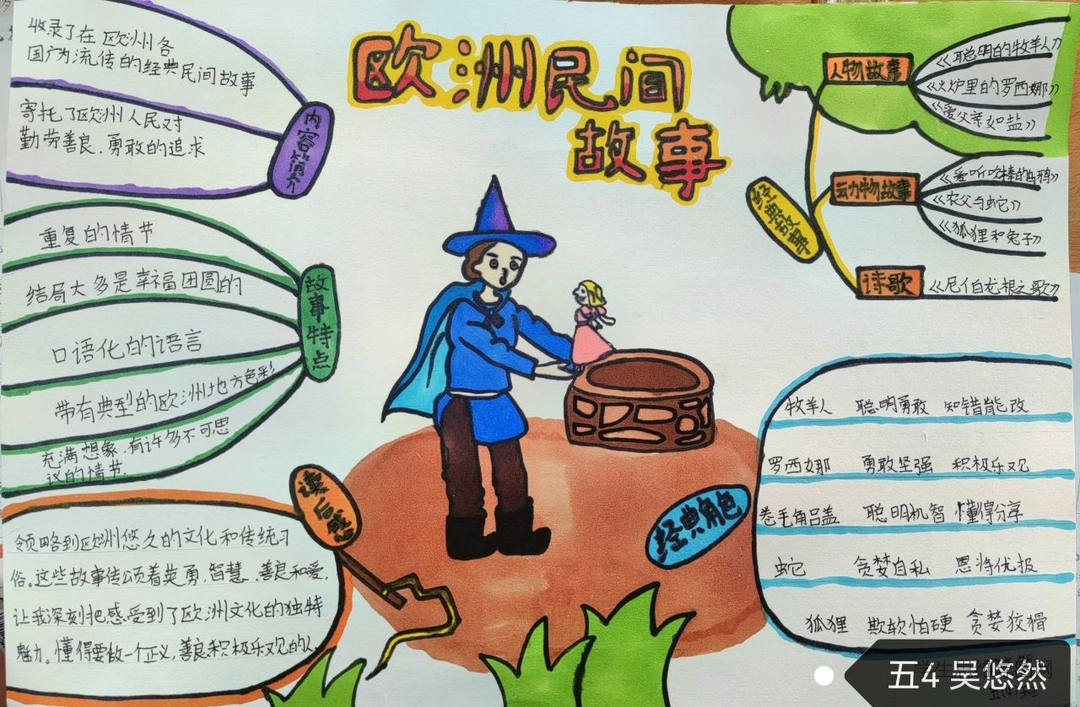 欧洲民间
故事
收录了在欧洲各
国广为流传的经典民间故事
寄托了欧洲人民对
勤劳善良、勇敢的追求
内容简介
重复的情节
结局大多是幸福团圆的
口语化的语言
带有典型的欧洲地方色彩
充满想象,有许多不可思
议的情节.
故事特点
读后感
领略到欧洲悠久的文化和传统习
俗。这些故事传颂着英勇,智慧,善良和爱,
让我深刻把感受到了欧洲文化的独特
魅力。懂得要做一个正义,善良积极乐观的人
经典故事
人物故事
《聪明的牧羊人》
《火炉里的罗西娜》
《爱父亲如盐》
动物故事
《农父与蛇》
《狐狸和兔子》
诗歌
《尼伯龙根之歌》
经典角色
牧羊人 聪明勇敢 知错能改
罗西娜 勇敢坚强 积极乐观
卷毛角吕盖 聪明机智 懂得分享
蛇 贪婪自私 恩将仇报
狐狸 欺软怕硬 贪婪狡猾
五4 吴悠然